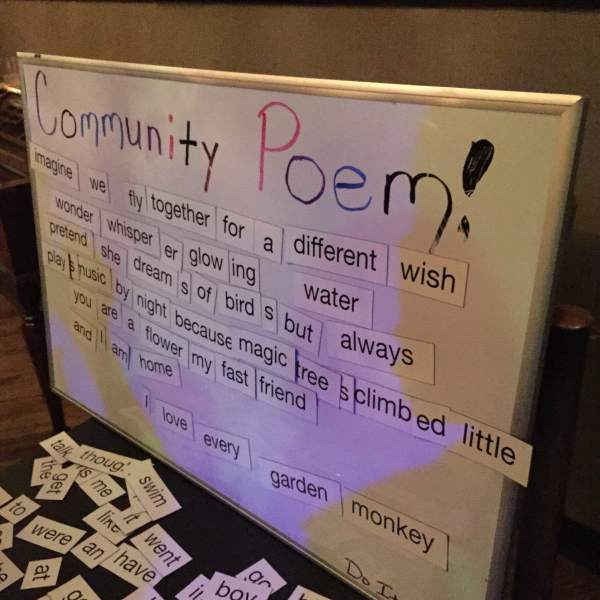 Community Poem!
imagine we fly together for a different wish
wonder whisper er glow ing water
pretend she dream s of bird s but always
play s music by night because magic tree s climb ed little
you are a flower my fast friend
and I am home
I love every garden monkey
Do
talk
get
is me swim
to
like it
were an have went
at
boy